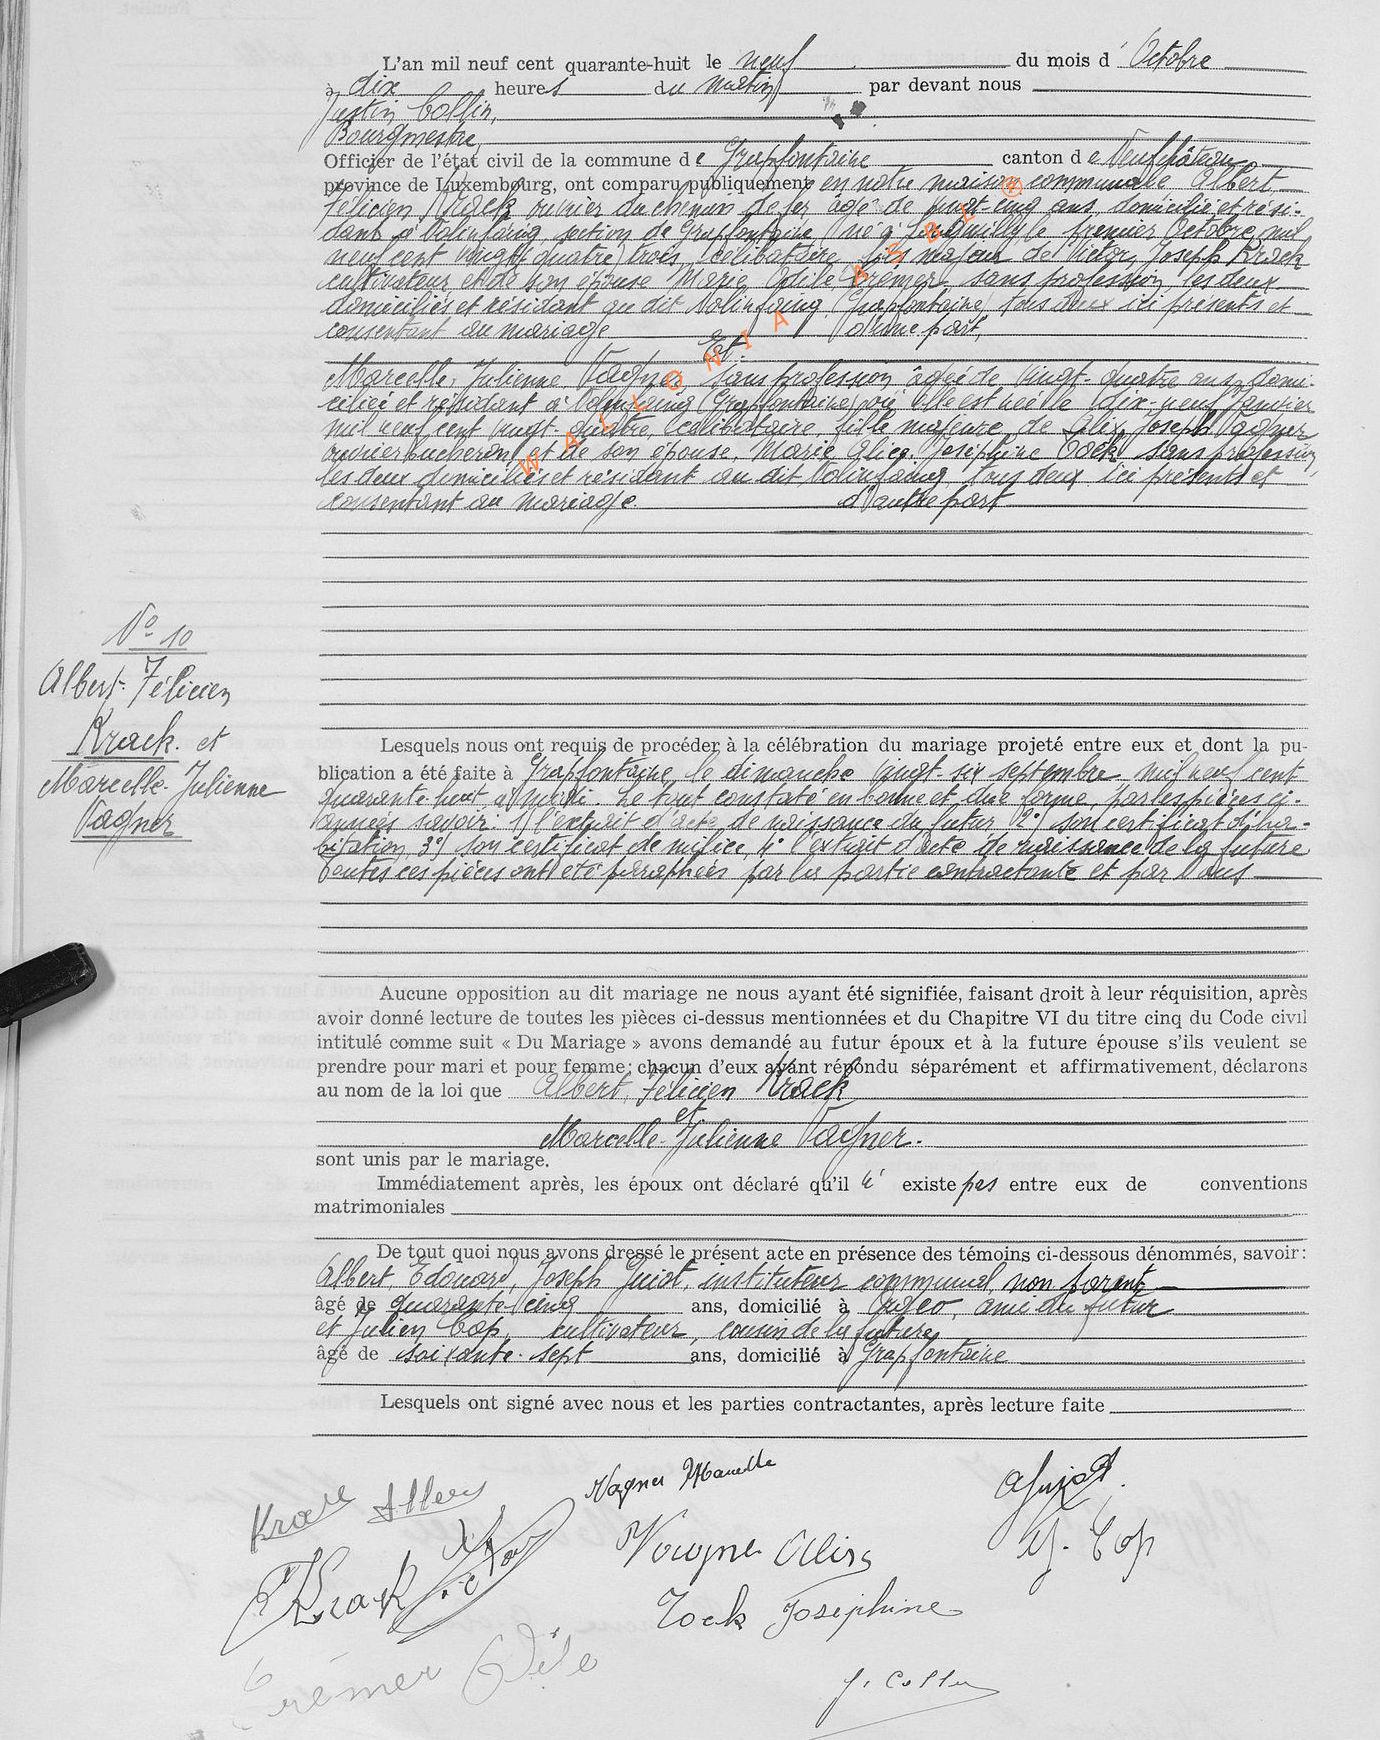 L'an mil neuf cent quarante-huit le neuf du mois d' Octobre
à dix heures du matin par devant nous
Justin Collin,
Bourgmestre,
Officier de l'état civil de la commune de Grapfontaine canton de Neufchâteau
province de Luxembourg, ont comparu publiquement en notre maison communale Albert,
Félicien Krack ouvrier du chemin de fer âgé de vingt-cinq ans, domicilié et rési-
dant à Volinfaing, section de Grapfontaine (né à le premier Octobre mil
neuf cent vingt trois, célibataire, fils majeur de Victor, Joseph Krack
cultivateur et de son épouse Marie Odile Crémer, sans profession, les deux
domiciliés et résidant au dit Volinfaing (Grapfontaine) tous deux ici présents et
consentant au mariage d'une part,
Et
Marcelle, Julienne Vagner, sans profession, âgée de vingt-quatre ans, domi-
ciliée et résidant à Volinfaing (Grapfontaine) où elle est née le dix-neuf janvier
mil neuf cent vingt-quatre, célibataire, fille majeure de Alix, Joseph Vagner
ouvrier bucheron et de son épouse, Marie Joséphine Tock sans profession,
les deux domiciliés et résidant au dit Volinfaing, tous deux ici présents et
consentant au mariage. d'autre part
WALLONIA ASBL
No 10
Albert-Félicien
Krack. et
Marcelle-Julienne
Vagner
Lesquels nous ont requis de procéder à la célébration du mariage projeté entre eux et dont la pu-
blication a été faite à Grapfontaine, le dimanche vingt-six septembre mil neuf cent
quarante-huit, à midi. Le tout constaté en bonne et due forme, par les pièces ci-
annexées savoir: 1) l'extrait d'acte de naissance du futur 2°) son certificat d'ha-
bitation, 3°) son certificat de milice, 4° l'extrait d'acte de naissance de la future
Toutes ces pièces ont été paraphées par la partie contractante et par Nous
Aucune opposition au dit mariage ne nous ayant été signifiée, faisant droit à leur réquisition, après
avoir donné lecture de toutes les pièces ci-dessus mentionnées et du Chapitre VI du titre cinq du Code civil
intitulé comme suit « Du Mariage » avons demandé au futur époux et à la future épouse s'ils veulent se
prendre pour mari et pour femme; chacun d'eux ayant répondu séparément et affirmativement, déclarons
au nom de la loi que Albert, Félicien Krack
et
Marcelle-Julienne Vagner.
sont unis par le mariage.
Immédiatement après, les époux ont déclaré qu'il n' existe pas entre eux de conventions
matrimoniales
De tout quoi nous avons dressé le présent acte en présence des témoins ci-dessous dénommés, savoir:
Albert, Edouard, Joseph Guiot, instituteur communal, non parent
âgé de quarante-cinq ans, domicilié à Ougeo, ami du futur
et Julien Cop, cultivateur, cousin de la future,
âgé de soixante-sept ans, domicilié à Grapfontaine
Lesquels ont signé avec nous et les parties contractantes, après lecture faite
Krack Albert Vagner Marcelle A Guiot
Krack Victor Vagner Alix J. Cop
Tock Joséphine
Crémer Odile
J. Collin